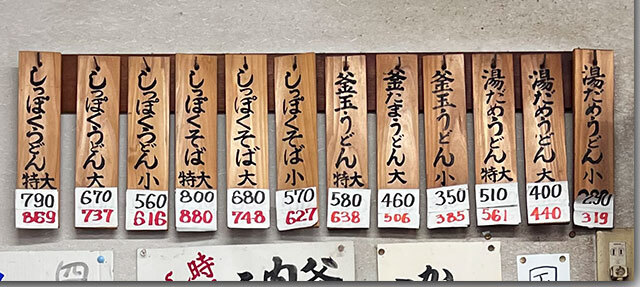 湯だめうどん 小
290
319
湯だめうどん 大
400
440
湯だめうどん 特大
510
561
釜玉うどん 小
350
385
釜たまうどん 大
460
506
釜玉うどん 特大
580
638
しっぽくそば 小
570
627
しっぽくそば 大
680
748
しっぽくそば 特大
800
880
しっぽくうどん 小
560
616
しっぽくうどん 大
670
737
しっぽくうどん 特大
790
869
か
釜
内
時
四